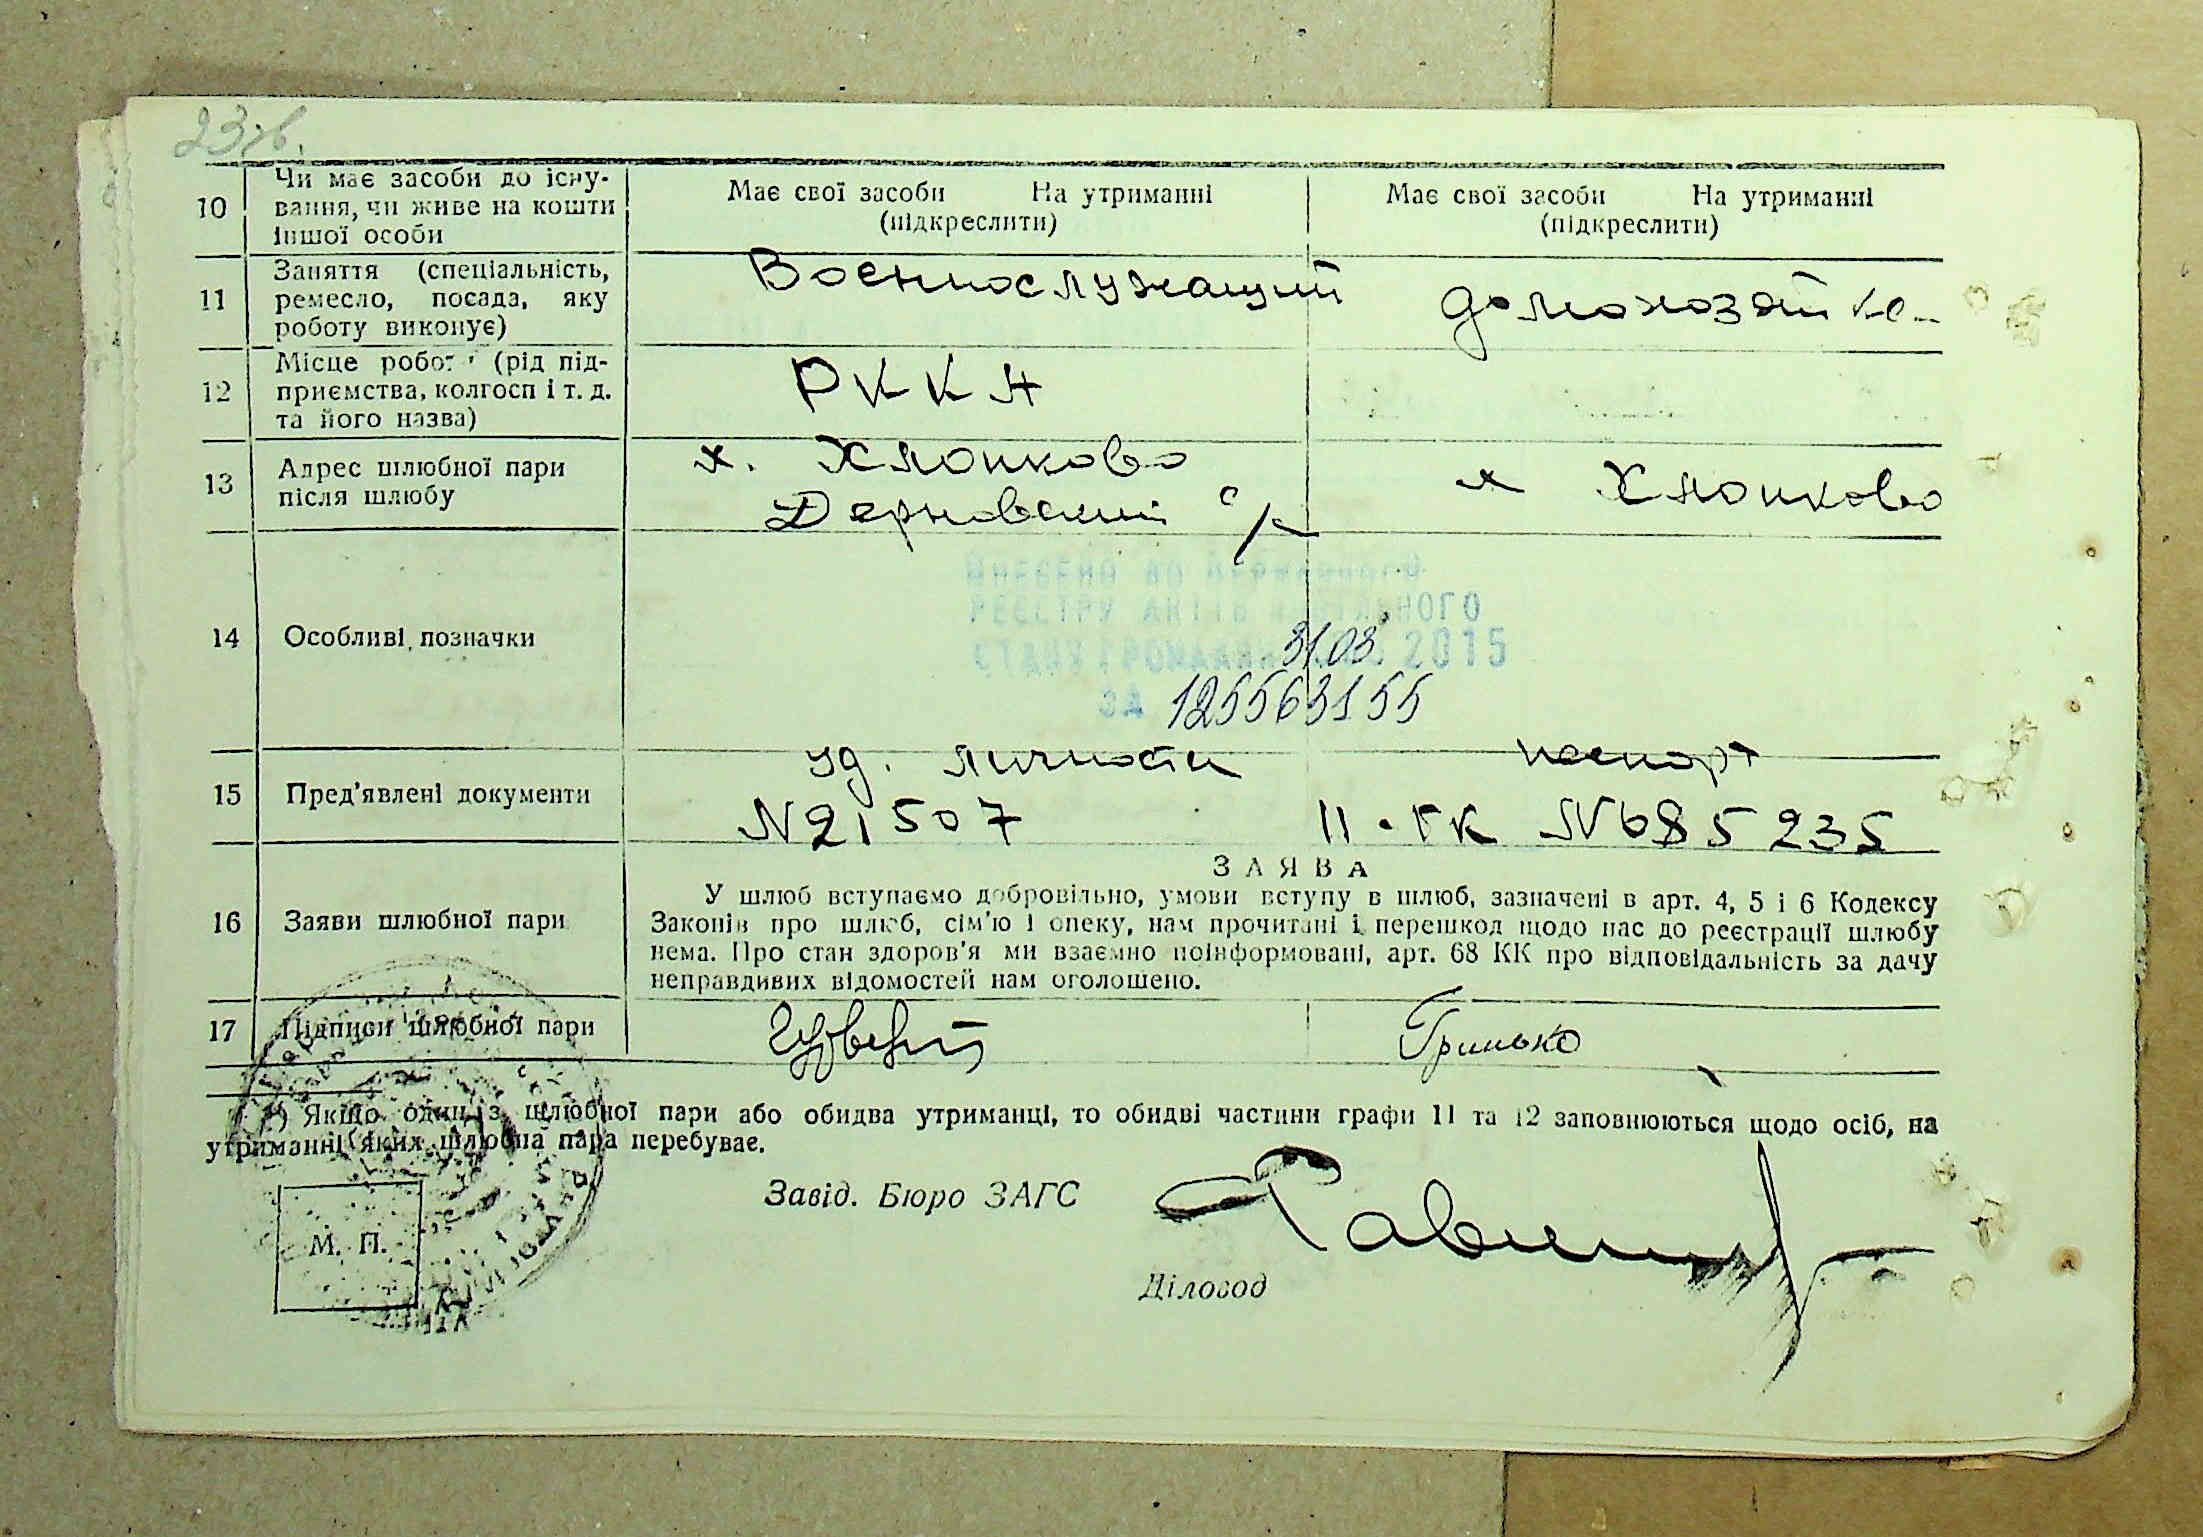 10 Чи має засоби до існу-
вання, чи живе на кошти
іншої особи
Має свої засоби На утриманні
(підкреслити)
Має свої засоби На утриманні
(підкреслити)
11 Заняття (спеціальність,
ремесло, посада, яку
роботу виконує)
Военнослужащий
домохозяйка
12 Місце роботи (рід під-
приємства, колгосп і т. д.
та його назва)
РККА
13 Адрес шлюбної пари
після шлюбу
х. Хлопково
Дерновский с/с
х Хлопково
14 Особливі позначки
ВНЕСЕНО ДО ДЕРЖАВНОГО
РЕЄСТРУ АКТІВ ЦИВІЛЬНОГО
СТАНУ ГРОМАДЯН 31.03. 2015
ЗА 125563155
15 Пред'явлені документи
уд. личности
N21507
паспорт
II-ГК N685235
16 Заяви шлюбної пари
ЗАЯВА
У шлюб вступаємо добровільно, умови вступу в шлюб, зазначені в арт. 4, 5 і 6 Кодексу
Законів про шлюб, сім'ю і опеку, нам прочитані і перешкод щодо нас до реєстрації шлюбу
нема. Про стан здоров'я ми взаємно поінформовані, арт. 68 КК про відповідальність за дачу
неправдивих відомостей нам оголошено.
17 Підписи шлюбної пари
Гринько
*) Якщо один з шлюбної пари або обидва утриманці, то обидві частини графи 11 та 12 заповнюються щодо осіб, на
утриманні яких шлюбна пара перебуває.
Завід. Бюро ЗАГС
Діловод
М. П.